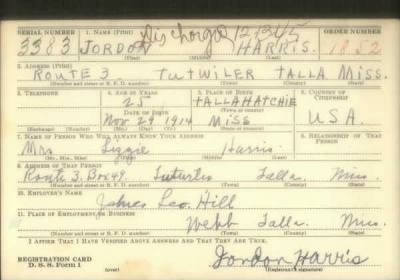 SERIAL NUMBER 1. NAME (Print) Discharged 12-13-45 ORDER NUMBER
3383 JORDON HARRIS. 1852
(First) (Middle) (Last)
2. ADDRESS (Print)
ROUTE 3 TUTWILER TALLA MISS.
(Number and street or R. F. D. number) (Town) (County) (State)
3. TELEPHONE 4. AGE IN YEARS 5. PLACE OF BIRTH 6. COUNTRY OF CITIZENSHIP
25 TALLAHATCHIE
DATE OF BIRTH (Town or county)
NOV 29 1914 MISS U.S.A.
(Exchange) (Number) (Mo.) (Day) (Yr.) (State or country)
7. NAME OF PERSON WHO WILL ALWAYS KNOW YOUR ADDRESS 8. RELATIONSHIP OF THAT PERSON
Mrs Lizzie Harris.
(Mr., Mrs., Miss) (First) (Middle) (Last)
9. ADDRESS OF THAT PERSON
Route 3. Box 49. Talla. Miss.
(Number and street or R. F. D. number) (Town) (County) (State)
10. EMPLOYER'S NAME
James Leo. Hill
11. PLACE OF EMPLOYMENT OR BUSINESS
Webb Talla. Miss.
(Number and street or R. F. D. number) (Town) (County) (State)
I AFFIRM THAT I HAVE VERIFIED ABOVE ANSWERS AND THAT THEY ARE TRUE.
REGISTRATION CARD
D. S. S. Form 1 (over) Jordon Harris
(Registrant's signature)